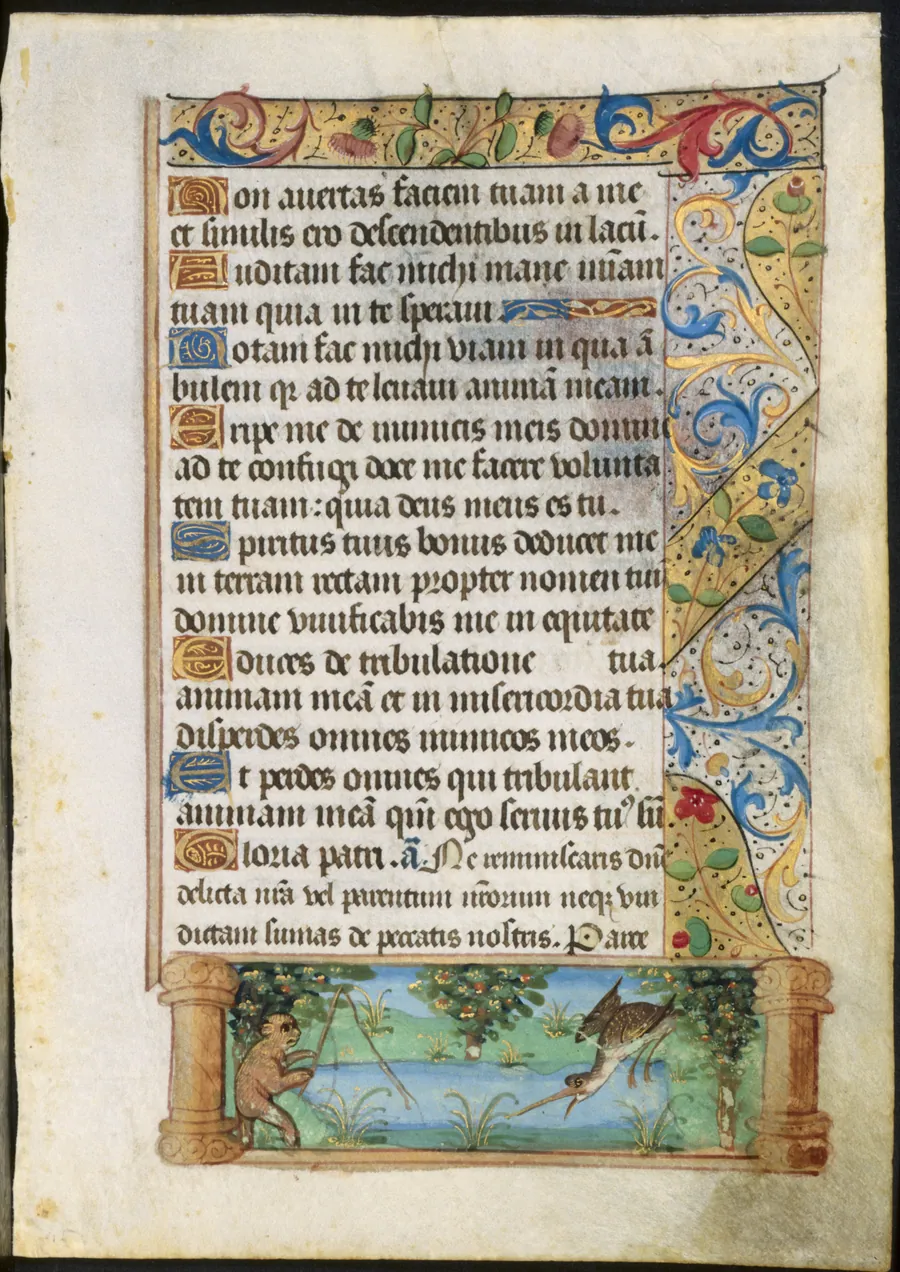 Non auertas faciem tuam a me
et similis ero descendentibus in lacū.
Auditam fac michi mane miām
tuam quia in te speraui
Notam fac michi viam in qua ā
bulem qr ad te leuaui animā meam.
Eripe me de inimicis meis domine
ad te confugi doce me facere volunta
tem tuam: quia deus meus es tu.
Spiritus tuus bonus deducet me
in terram rectam propter nomen tuū
domine viuificabis me in equitate
Educes de tribulatione tua.
animam meā et in misericordia tua
disperdes omnes inimicos meos.
Et perdes omnes qui tribulant
animam meā qm̄ ego seruus tuꝰ sū
Gloria patri. ā. Ne reminiscaris dn̄e
delicta nr̄a vel parentum nr̄orum neqꝫ vin
dictam sumas de peccatis nostris. Parce